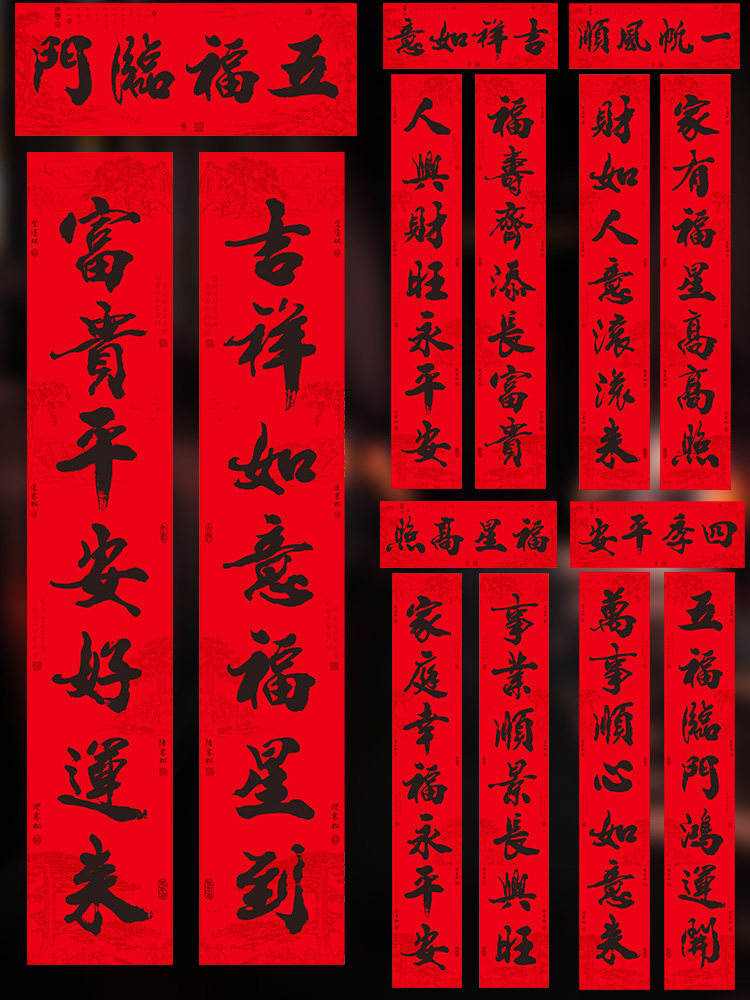 五福臨門
吉祥如意福星到
富貴平安好運来
吉祥如意
福壽齊添長富貴
人興財旺永平安
一帆風順
家有福星高高照
財如人意滾滾来
福星高照
事業順景長興旺
家庭幸福永平安
四季平安
五福臨門鴻運開
萬事順心如意来